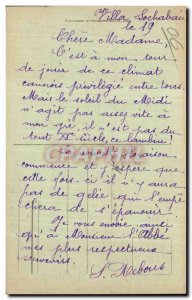 Villa Lochabair
le 19
96
Chère Madame,
C'est à mon tour
de jouir de ce climat
cannois privilégié entre tous
Mais le soleil du Midi
n'agit pas assez vite à
mon gré, il n'est pas du
tout XXe siècle, ce lambin!
saison
commence et j'espère que
cette fois-ci il n'y aura
pas de gelée qui l'empê
chera de s'épanouir.
Je vous envoie ainsi
qu'à Monsieur l'Abbé
mes plus respectueux
souvenirs.
S. Rebours